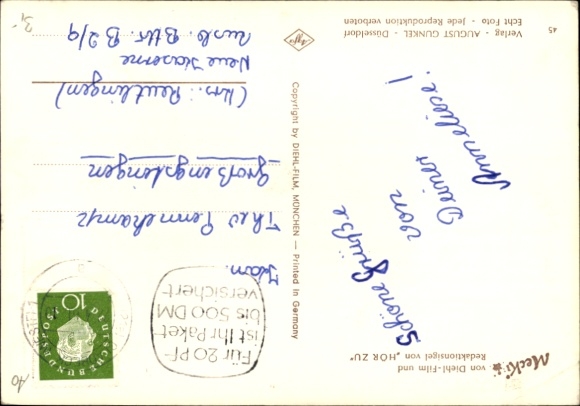 Mecki
von Diehl-Film und
Redaktionsigel von „HÖR ZU"
Schöne Grüße
von
Deiner
Anneliese!
Verlag - AUGUST GUNKEL - Düsseldorf
Echt Foto - Jede Reproduktion verboten
45
Copyright by DIEHL-FILM, MÜNCHEN — Printed in Germany
Agfa
Für 20 PF-
ist Ihr Paket
bis 500 DM
versichert
DEUTSCHE
BUNDESPOST
10
Theo Pennekamp
Großengstingen
(Krs.: Reutlingen)
Neue Kaserne
Ausb. Bttr. B 2/9
3,-
10